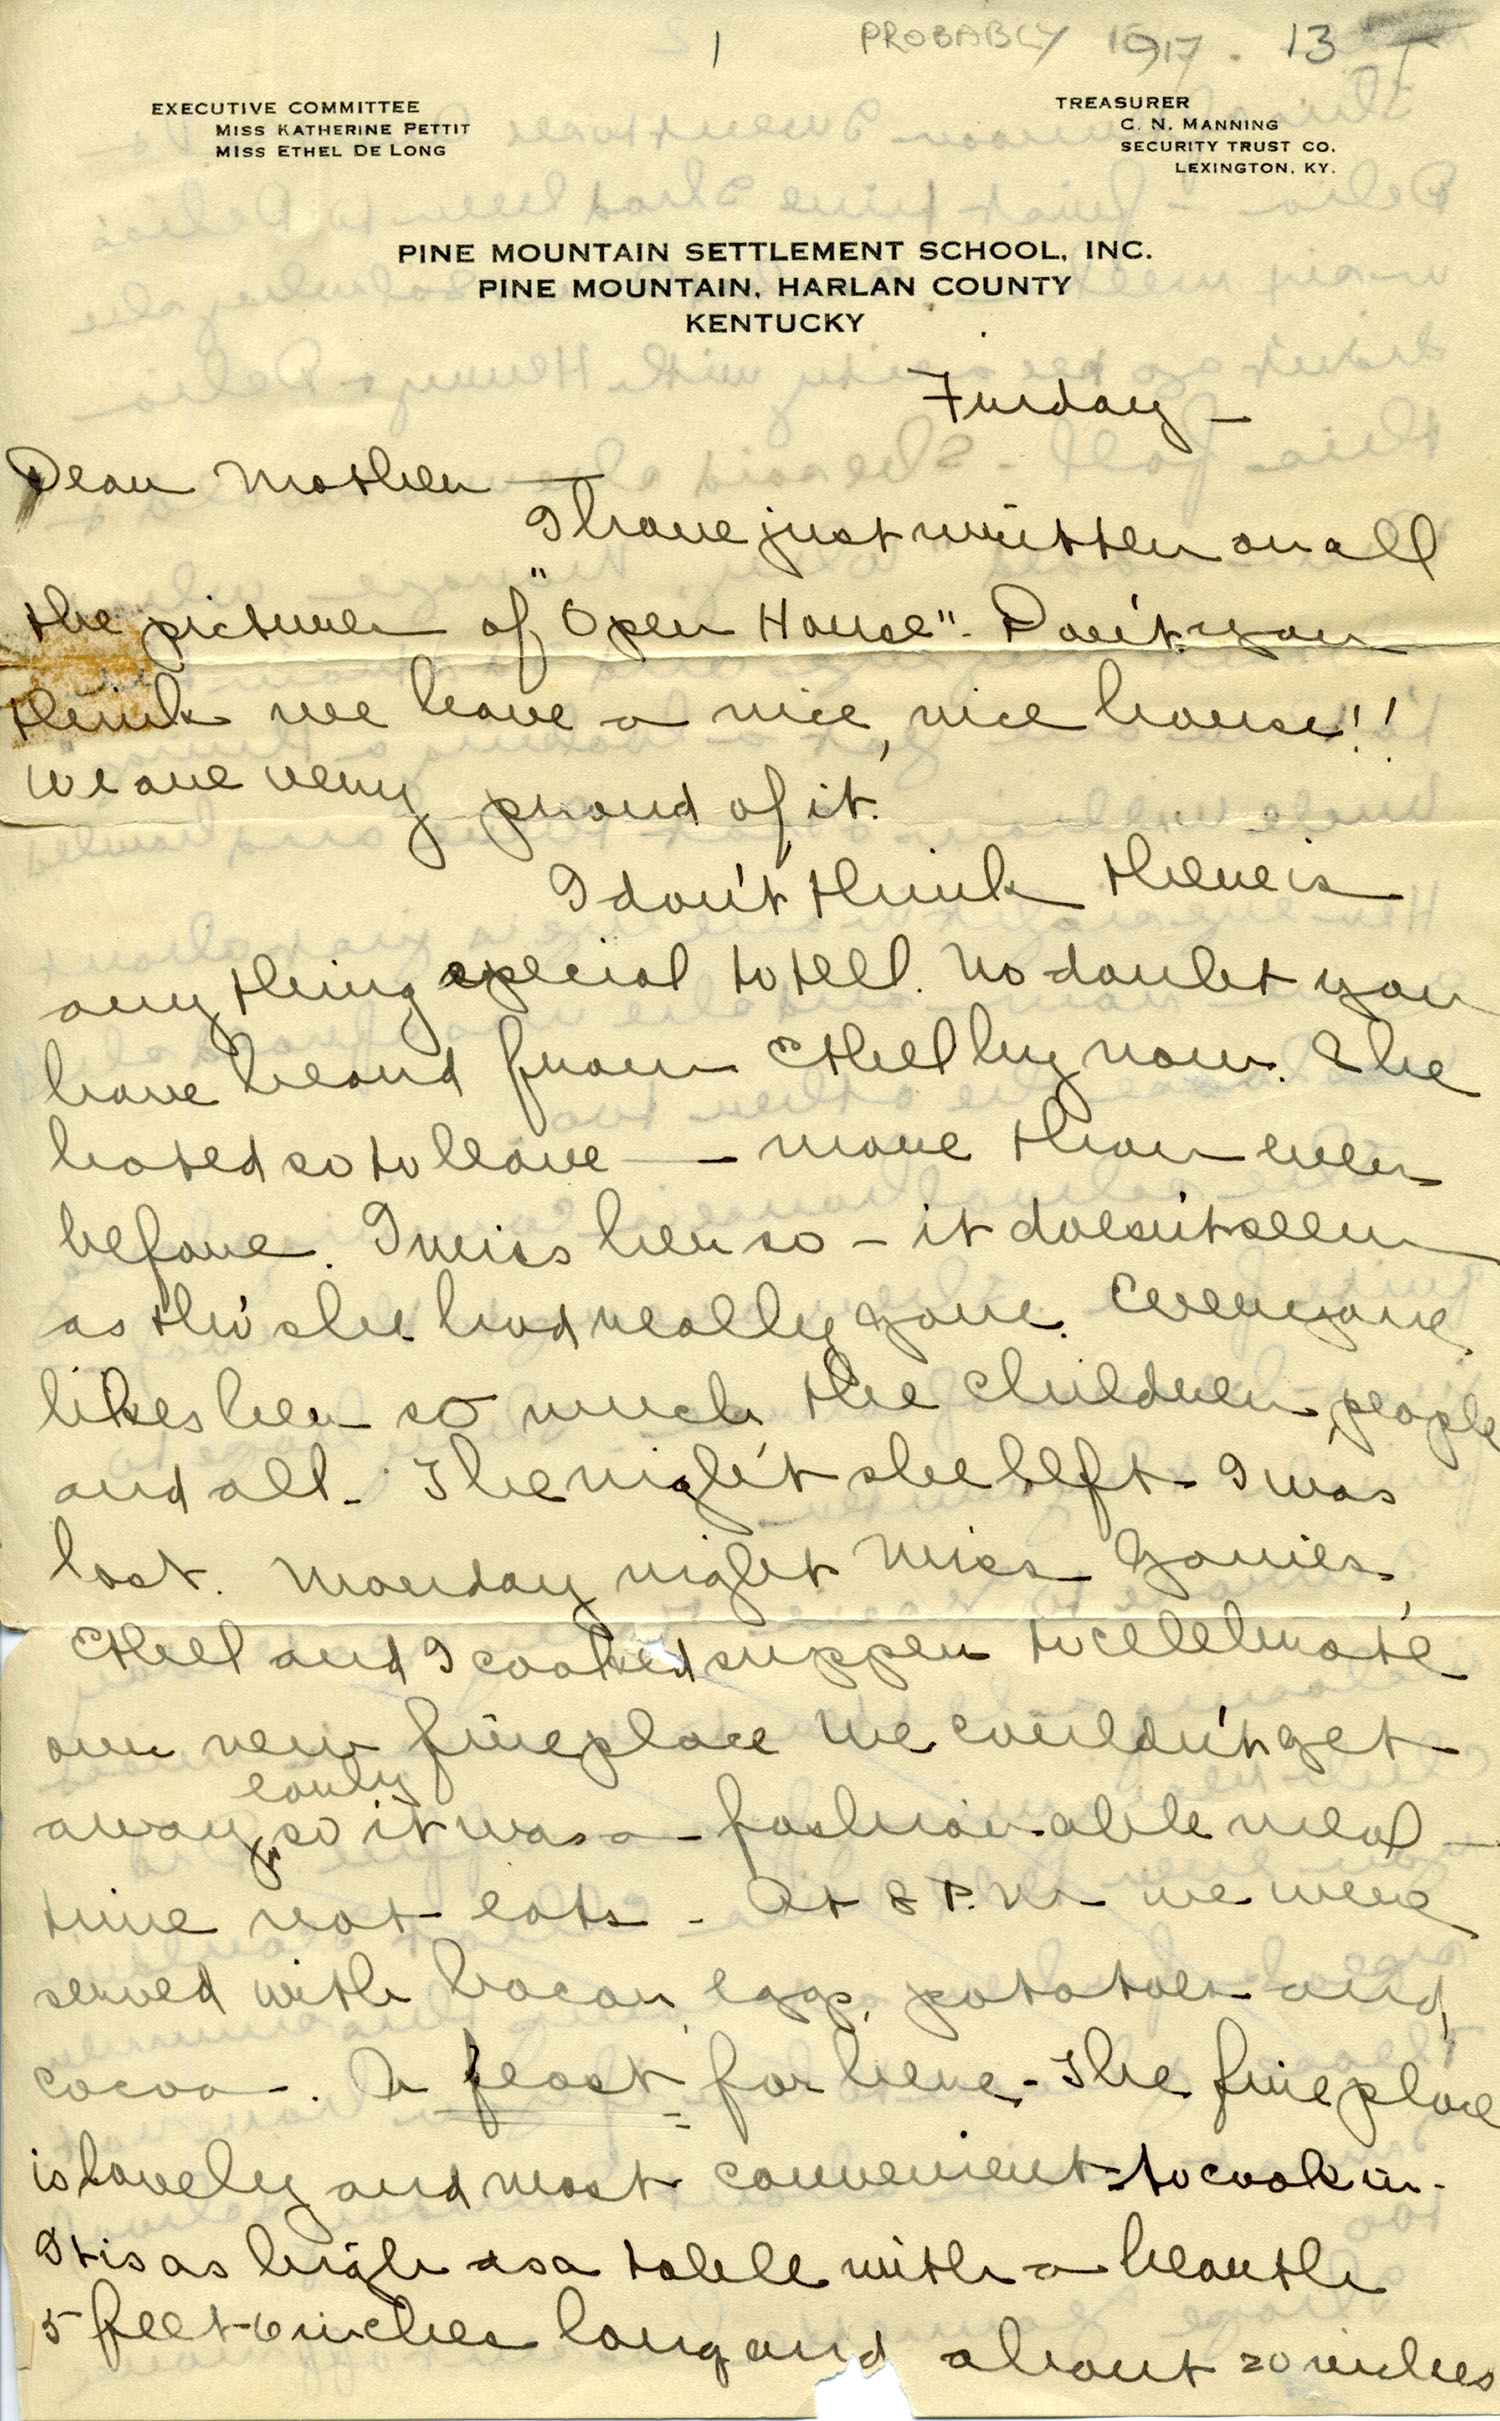 1 PROBABLY 1917. 13
EXECUTIVE COMMITTEE
MISS KATHERINE PETTIT
MISS ETHEL DE LONG
TREASURER
C. N. MANNING
SECURITY TRUST CO.
LEXINGTON, KY.
PINE MOUNTAIN SETTLEMENT SCHOOL, INC.
PINE MOUNTAIN, HARLAN COUNTY
KENTUCKY
Friday —
Dear Mother —
I have just written on all
the pictures of "Open House". Don't you
think we have a nice, nice house!!
We are very proud of it.
I don't think there is
any thing special to tell. No doubt you
have heard from Ethel by now. She
hated so to leave — more than ever
before. I miss her so — it doesn't seem
as tho' she had really gone. Everyone
likes her so much, the children, people
and all. The night she left I was
lost. Monday night Miss Gaines,
Ethel and I cooked supper to celebrate
our new fireplace We couldn't get
away early, so it was a fashionable meal —
time not eats - At 8 P.M. we were
served with bacon, eggs, potatoes and,
cocoa -. A feast for here - The fireplace
is lovely and most convenient to cook in -
It is as high as a table with a hearth
5 feet 6 inches long and about 20 inches